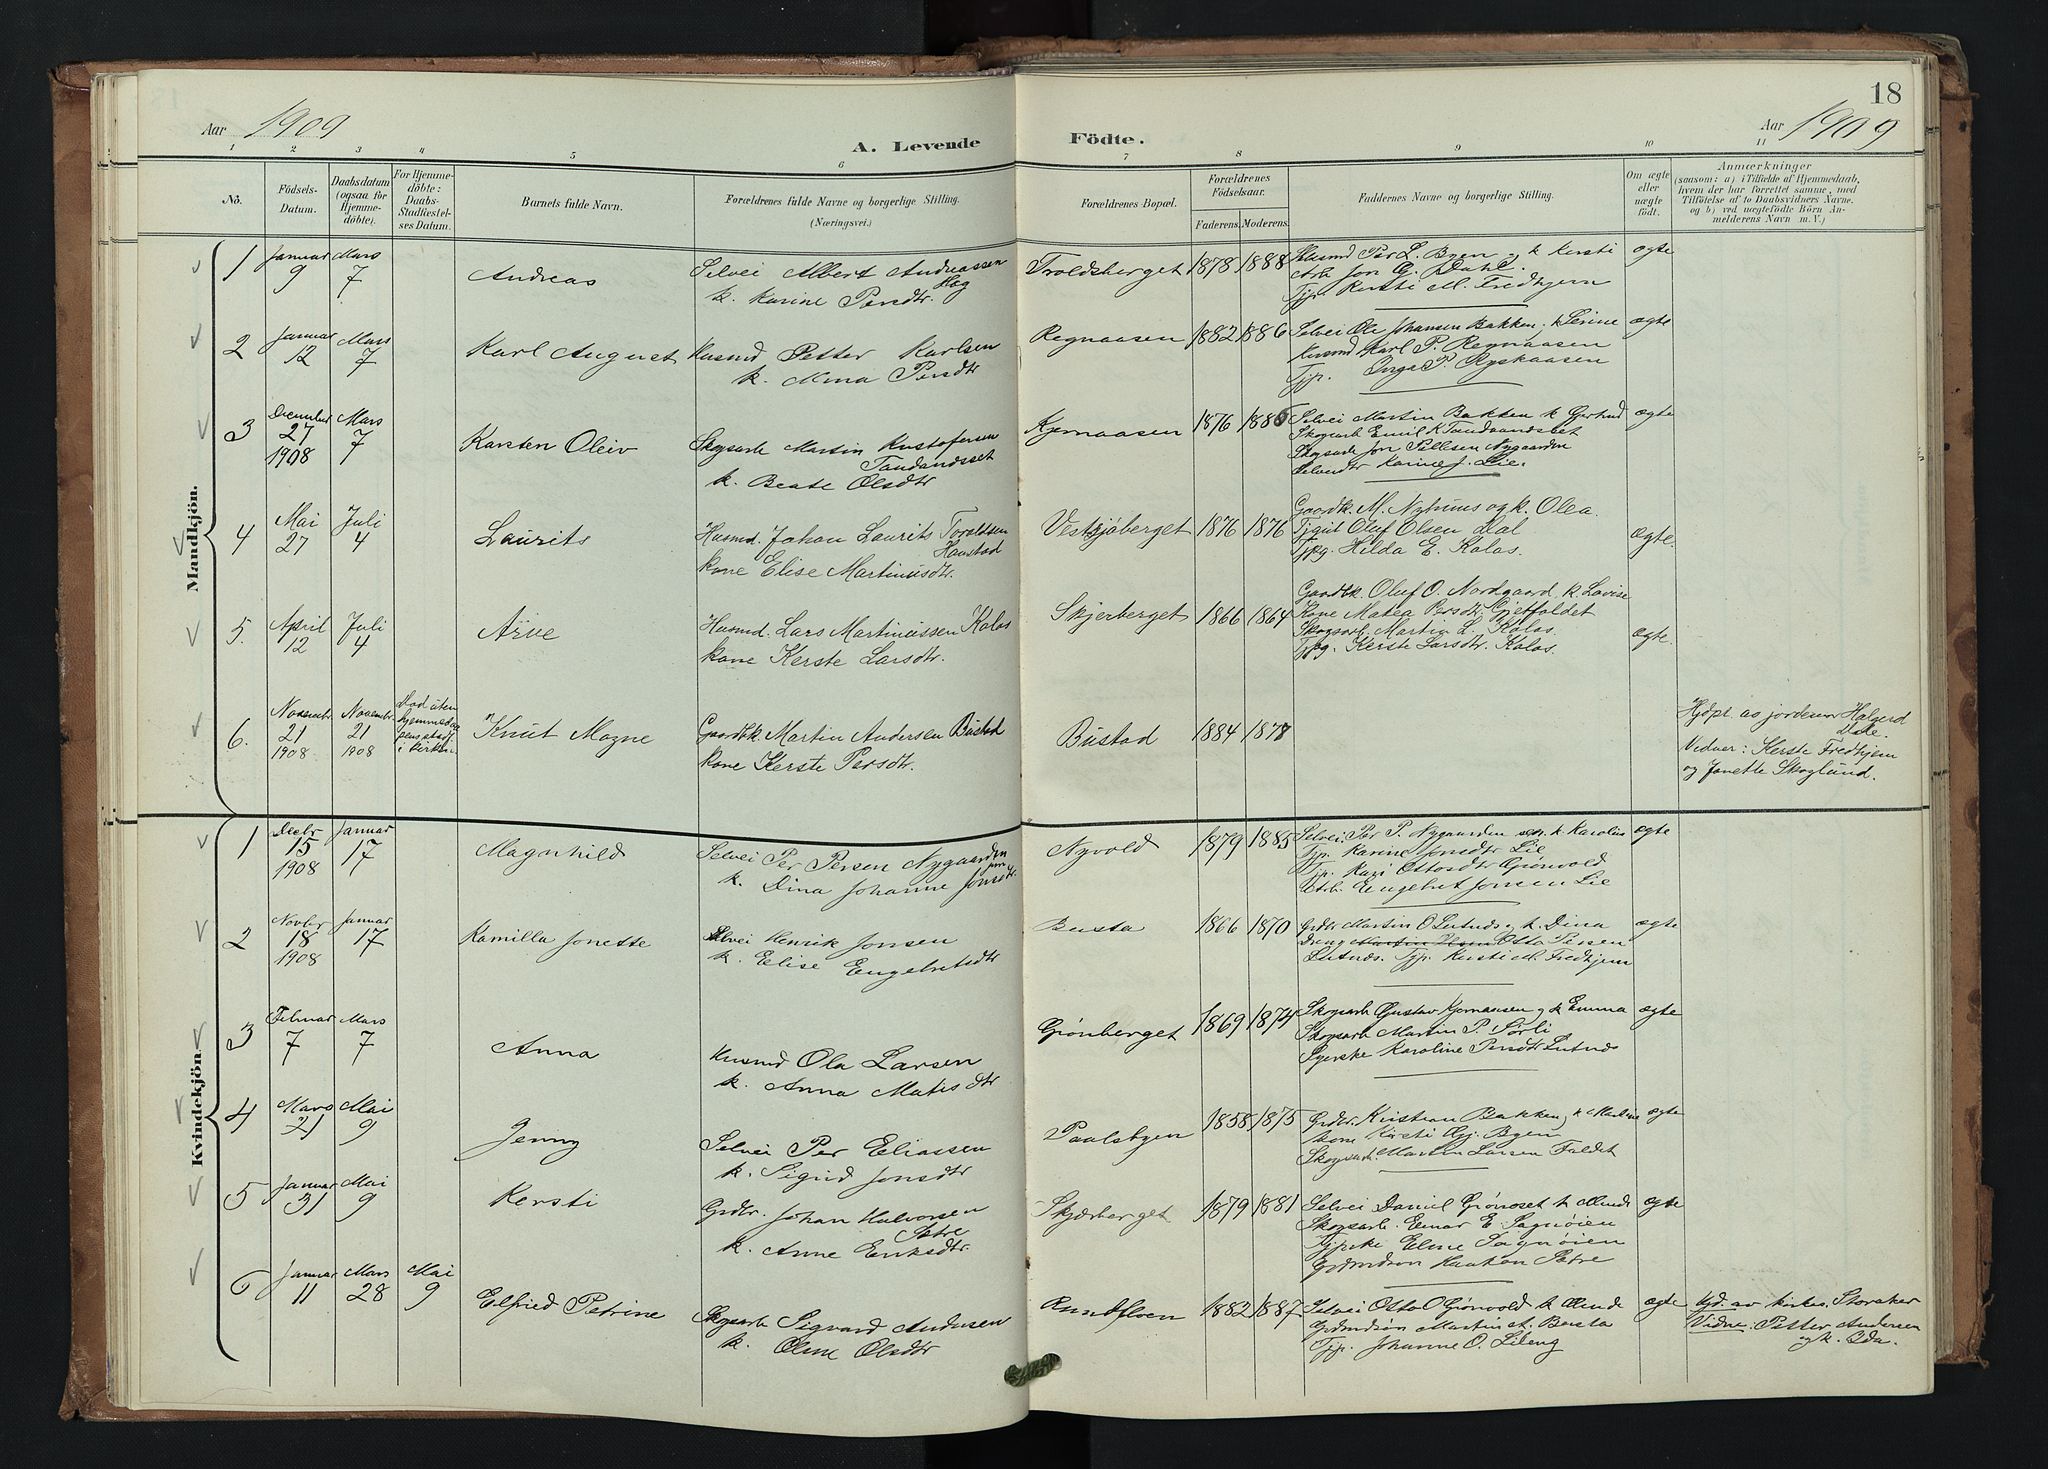 18
Aar 1909
A. Levende
Födte.
Aar 1909
1 2 3 4 5 6 7 8 9 10 11
No.
Födsels-Datum.
Daabsdatum (ogsaa for Hjemmedöbte).
For Hjemmedöbte: Daabs-Stadfæstelses Datum.
Barnets fulde Navn.
Forældrenes fulde Navne og borgerlige Stilling.
(Næringsvei.)
Forældrenes Bopæl.
Forældrenes Födselsaar.
Faderens. Moderens.
Faddernes Navne og borgerlige Stilling.
Om ægte eller uægte födt.
Anmærkninger
(saasom: a) i Tilfælde af Hjemmedaab, hvem der har forrettet samme, med Tilföielse af to Daabsvidners Navne. og b) ved uægtefödte Börn Anmelderens Navn m. V.)
Mandkjön.
1 Januar 9 Mars 7 Andreas Selvei Albert Andreassen Hag
k. Karine Persdtr. Troldsberget 1878 1888 Husmd Per L. Byen og k Kersti
Arb Jon G. Dahl.
Tjp. Kersti M. Fredhjem ægte
2 Januar 12 Mars 7 Karl August Husmd Petter Karlsen
k. Mina Persdtr Regnaasen 1882 1886 Selvei Ole Johansen Bakken, k Serine
Husmd Karl P. Regnaasen
Tjp. Inga P. Ryskaasen ægte
3 December 27 1908 Mars 7 Karsten Oleiv Skogsarb Martin Kristofersen
Tandandsset
k. Beate Olsdtr Kjernaasen 1876 1886 Selvei Martin Bakken k Gertrud
Skogsarb Emil K Tandaandsset
Skogsarb Jon Pettersen Nygaarden
Selveidtr Karine J. Lie. ægte
4 Mai 27 Juli 4 Laurits Husmd. Johan Laurits Toraldsen
Haustad
kone Elise Martinusdtr. Vestsjøberget 1876 1876 Gaardbk. M. Nyhuus og k. Olea.
Tjgut Oluf Olsen Dal
Tjpg. Hilda E. Kolos. ægte.
5. April 12 Juli 4 Arve Husmd. Lars Martinussen Kolos
kone Kerste Larsdtr. Skjerberget 1866 1864 Gaardbk. Oluf O. Nordgaard, k. Lovise
Kone Matea Persdtr. Gjetfoldet
Skogsarb. Martin L. Kolos.
Tjpg. Kerste Larsdtr. Kolos. ægte.
6. Novembr. 21 1908 Novembr. 21 1908 Knut Magne Gaardbk. Martin Andersen Bustad
kone Kerste Persdtr. Bustad 1884 1878 Hjdpt. av jordemor Halgerd Dale.
Vidner: Kerste Fredhjem
og Jonette Skoglund.
Kvindekjön.
1 Decbr 15 1908 Januar 17 Magnhild Selvei Per Persen Nygaarden
k. Dina Johanne Jonsdtr. Nyvold 1879 1885 Selvei Per P. Nygaarden sen. k. Karolius
Tjp. Karine Jonsdtr Lie
Tjp. Kari Ottosdtr Grönvold
Arb. Engebret Jonsen Lie ægte
2 Novbr 18 1908 Januar 17 Kamilla Jonette Selvei Henrik Jonsen
k. Elise Engebretsdtr Busta 1866 1870 Grdbr Martin O Lutnæs og k. Dina
Dreng Otto Persen
Lutnæs. Tjp. Kersti M. Fredhjem ægte
3 Februar 7 Mars 7 Anna Husmd Ola Larsen
k. Anna Matisdtr Grønberget 1869 1874 Skogsarb Gustav Kjernaasen og k Emma
Skogsarb Martin P. Sørli
Syerske Karoline Persdtr Lutnæs ægte
4 Mars 21 Mai 9 Jenny Selvei Per Eliassen
k. Sigrid Jonsdtr Paalsbyen 1858 1875 Grdbr. Kristian Bakken, k Marline
Kone Kirsti Byen
Skogsarb. Martin Larsen Faldet ægte
5 Januar 31 Mai 9 Kersti Grdbr. Johan Halvorsen
Sætre
k. Anne Eriksdtr. Skjærberget 1879 1881 Selvei Daniel Grønoset k Minda
Skogsarb. Einar E. Sagnøien
Tjpike Elme Sagnøien
Grdmdsøn Haakon Sætre ægte
6 Januar 11 Mars 28 Mai 9 Elfried Petrine Skogsarb Sigvard Andersen
k. Oline Olsdtr Rundfloen 1882 1887 Selvei Otto O Grønvold k Minda
Grdmdsøn Martin A. Busta
Tjp. Johanne O. Lileng ægte Hjd. av kirkes. Storaker
Vidne. Petter Andersen
og k. Ida.